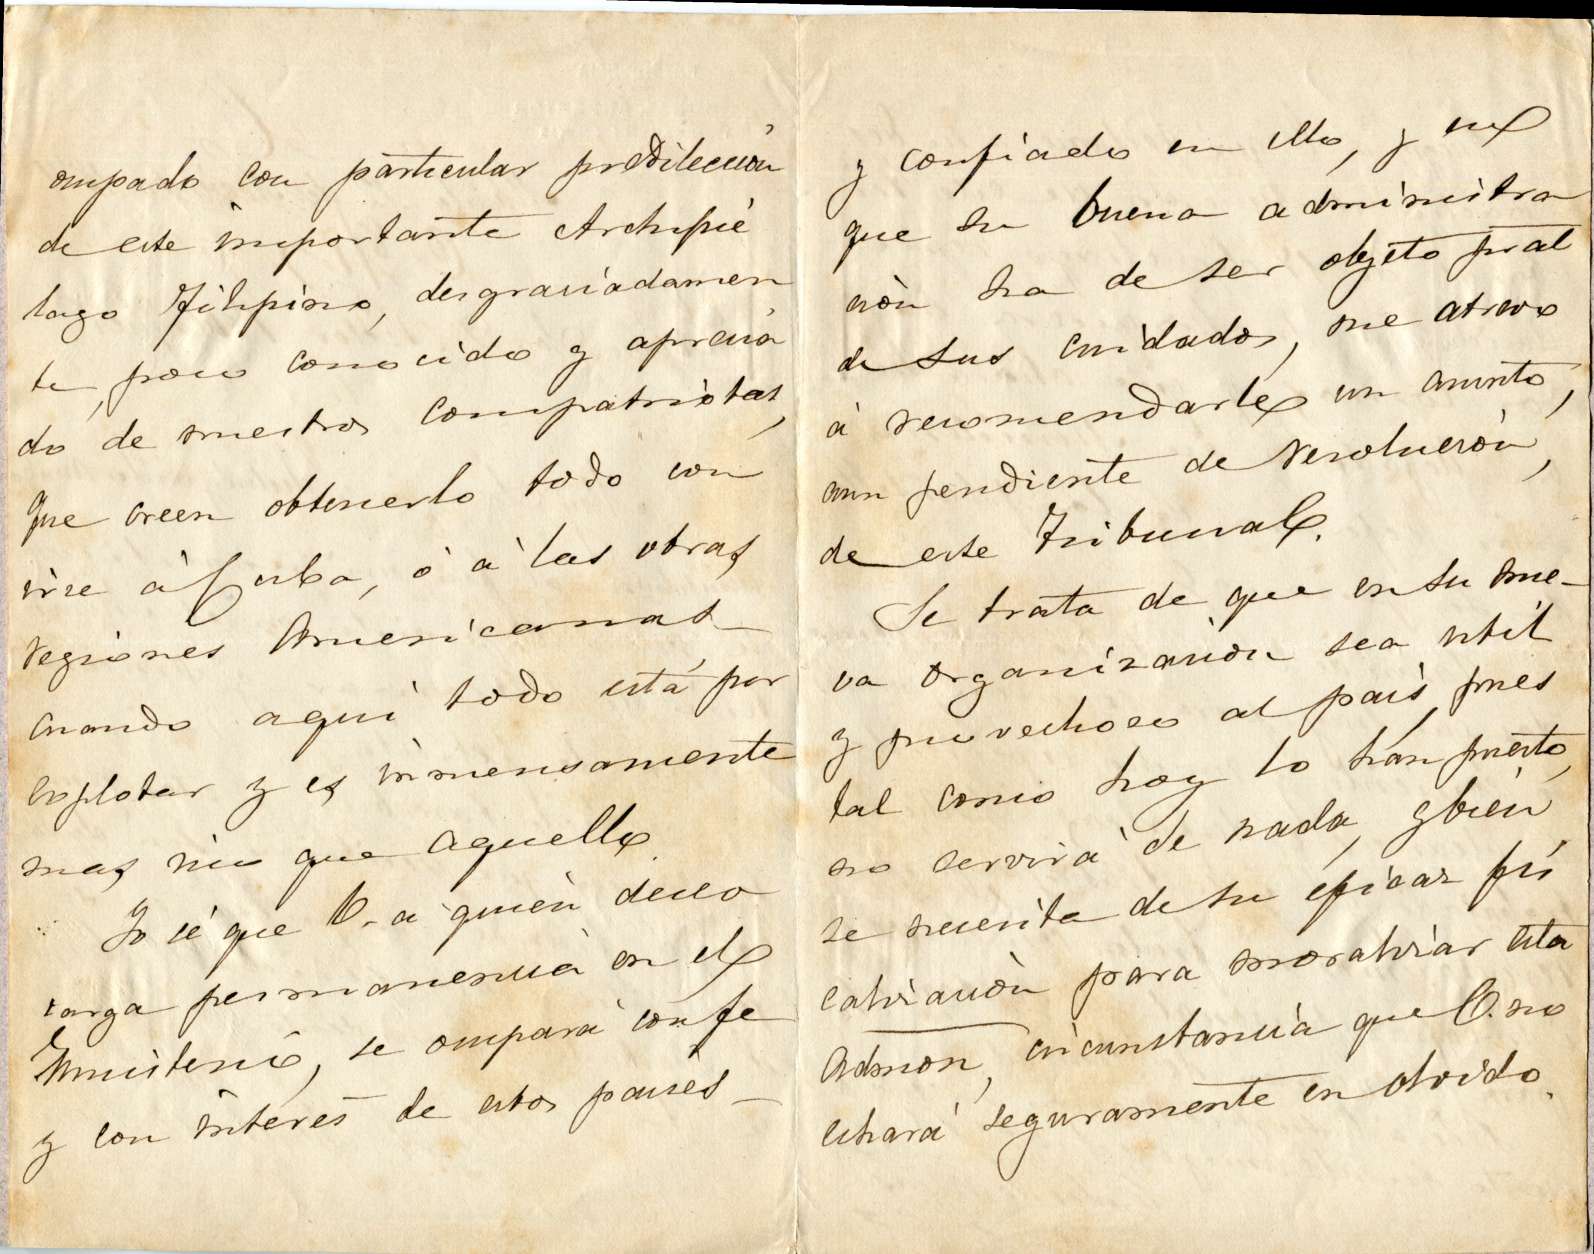 ocupado con particular predilección
de este importante Archipié
lago Filipino, desgraciadamen
te, poco conocido y aprecia
do de nuestros compatriotas,
que creen obtenerlo todo con
irse á Cuba, ó á las otras
regiones Americanas_
cuando aqui todo está por
explotar y es inmensamente
mas rico que aquello.
Yo sé que V. a quién deseo
larga permanencia en el
Ministerio, se ocupará con fe
y con interés de estos paises_
y confiado en ello, y en
que su buena administra
ción ha de ser objeto pral
de sus cuidados, me atrevo
á recomendarle un asunto,
aun pendiente de resolución,
de este Tribunal.
Se trata de que en su nue-
va organización sea util
y provechoso al país, pues
tal como hoy lo han puesto,
no servirá de nada, y bién
se necesita de su eficaz fis
calización para moralizar esta
Admon, circunstancia que V. no
echará seguramente en olvido.